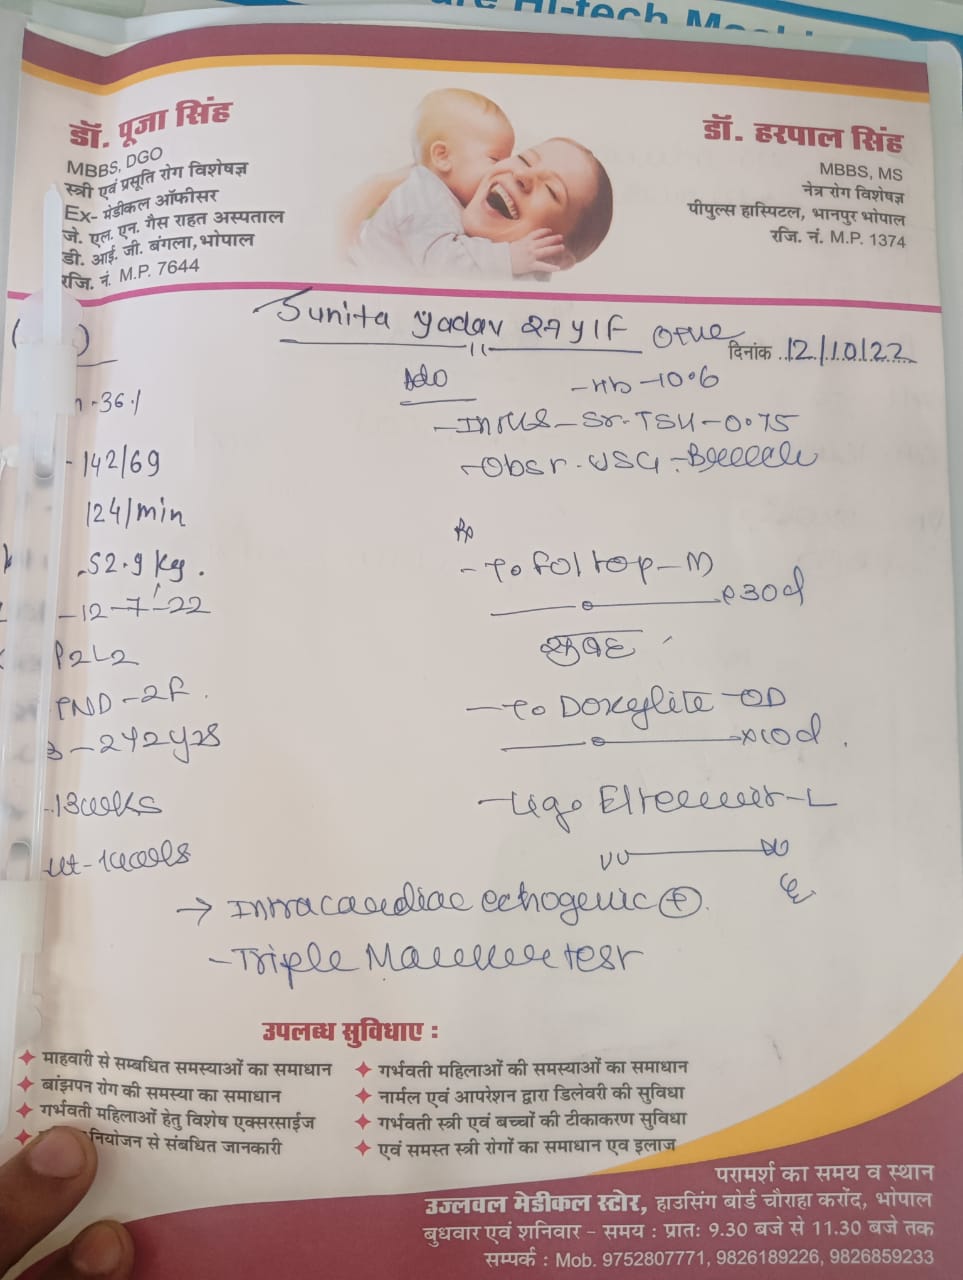 डॉ. पूजा सिंह
MBBS, DGO
स्त्री एवं प्रसूति रोग विशेषज्ञ
Ex- मेडीकल ऑफीसर
जे. एल. एन. गैस राहत अस्पताल
डी. आई. जी. बंगला, भोपाल
रजि. नं. M.P. 7644
डॉ. हरपाल सिंह
MBBS, MS
नेत्र रोग विशेषज्ञ
पीपुल्स हास्पिटल, भानपुर भोपाल
रजि. नं. M.P. 1374
Sunita Yadav 27 y/F
दिनांक 12/10/22
- 142/69
124/min
- 52.9 kg.
- 12-7-22
P2L2
FND - 2F.
- 2 1/2 yrs
- 13 weeks
Adv
- Hb - 10.6
- Sr. TSH - 0.75
- Obst. USG -
Rx
- To Foltop - M
x 30d
सुबह
- To Doxylite - OD
x 10d.
→ Intracardiac echogenic ⊕.
- Triple Marker test
उपलब्ध सुविधाए :
माहवारी से सम्बधित समस्याओं का समाधान
बांझपन रोग की समस्या का समाधान
गर्भवती महिलाओं हेतु विशेष एक्सरसाईज
नियोजन से संबधित जानकारी
गर्भवती महिलाओं की समस्याओं का समाधान
नार्मल एवं आपरेशन द्वारा डिलेवरी की सुविधा
गर्भवती स्त्री एवं बच्चों की टीकाकरण सुविधा
एवं समस्त स्त्री रोगों का समाधान एव इलाज
परामर्श का समय व स्थान
उज्लवल मेडीकल स्टोर, हाउसिंग बोर्ड चौराहा करोंद, भोपाल
बुधवार एवं शनिवार - समय : प्रातः 9.30 बजे से 11.30 बजे तक
सम्पर्क : Mob. 9752807771, 9826189226, 9826859233